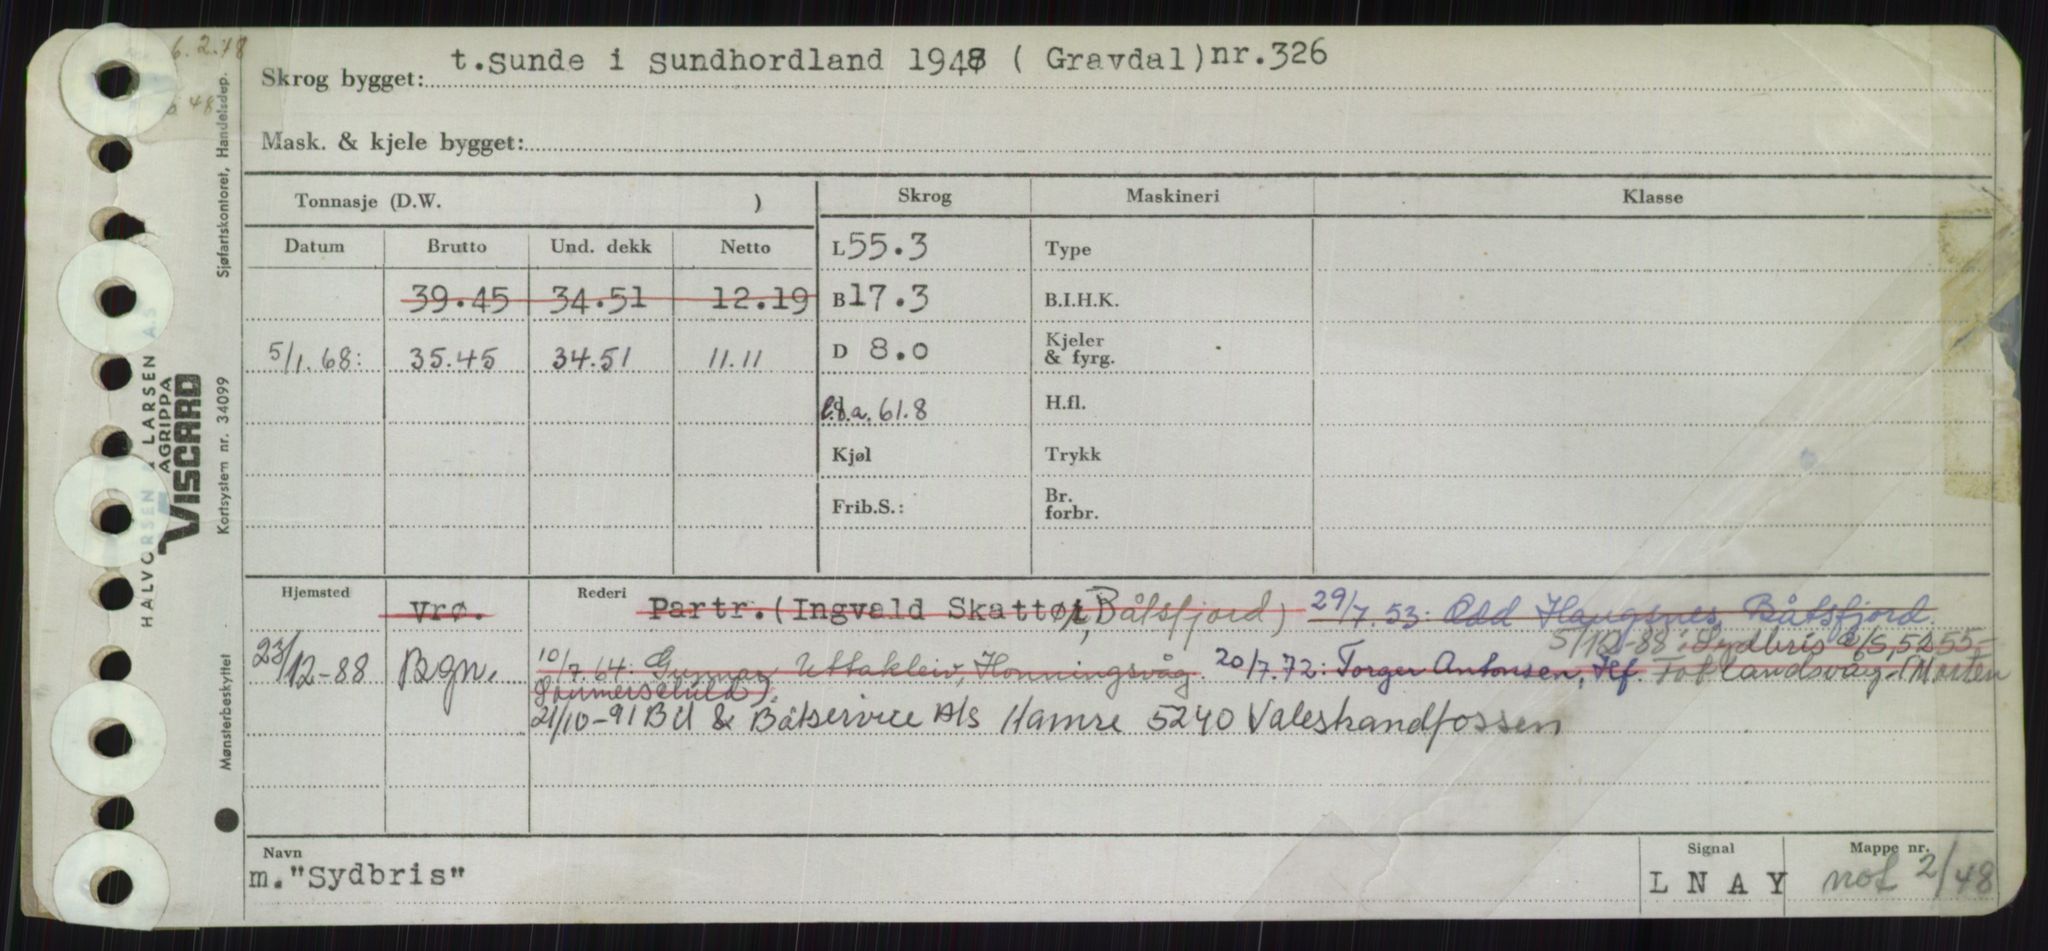 6.2.48
Skrog bygget: t.Sunde i Sundhordland 1948 ( Gravdal)nr.326
48
Mask. & kjele bygget:
Tonnasje (D.W. )
Skrog Maskineri Klasse
Datum Brutto Und. dekk Netto
L 55.3 Type
39.45 34.51 12.19
B 17.3 B.I.H.K.
5/1.68: 35.45 34.51 11.11
D 8.0 Kjeler & fyrg.
l.o.a. 61.8 H.fl.
Kjøl Trykk
Frib.S.: Br. forbr.
Hjemsted Vrø. Rederi Partr.(Ingvald Skattør, Båtsfjord) 29/7.53: Odd Haugsnes, Båtsfjord.
5/12-88: Sydbris A/S, 5255-
23/12-88 Bgn. 10/7.64: Gunnar Uttakleiv, Honningsvåg. 20/7.72: Torger Antonsen, Hf. Fotlandsvåg (Morten
Gummersehuld).
21/10-91 Bil & Båtservice A/S Hamre 5240 Valestrandfossen
Navn Signal Mappe nr.
m."Sydbris" L N A Y not 2/48
Sjøfartskontoret, Handelsdep.
HALVORSEN & LARSEN A.S
AGRIPPA
VISCARD
Kortsystem nr. 34099
Mønsterbeskyttet